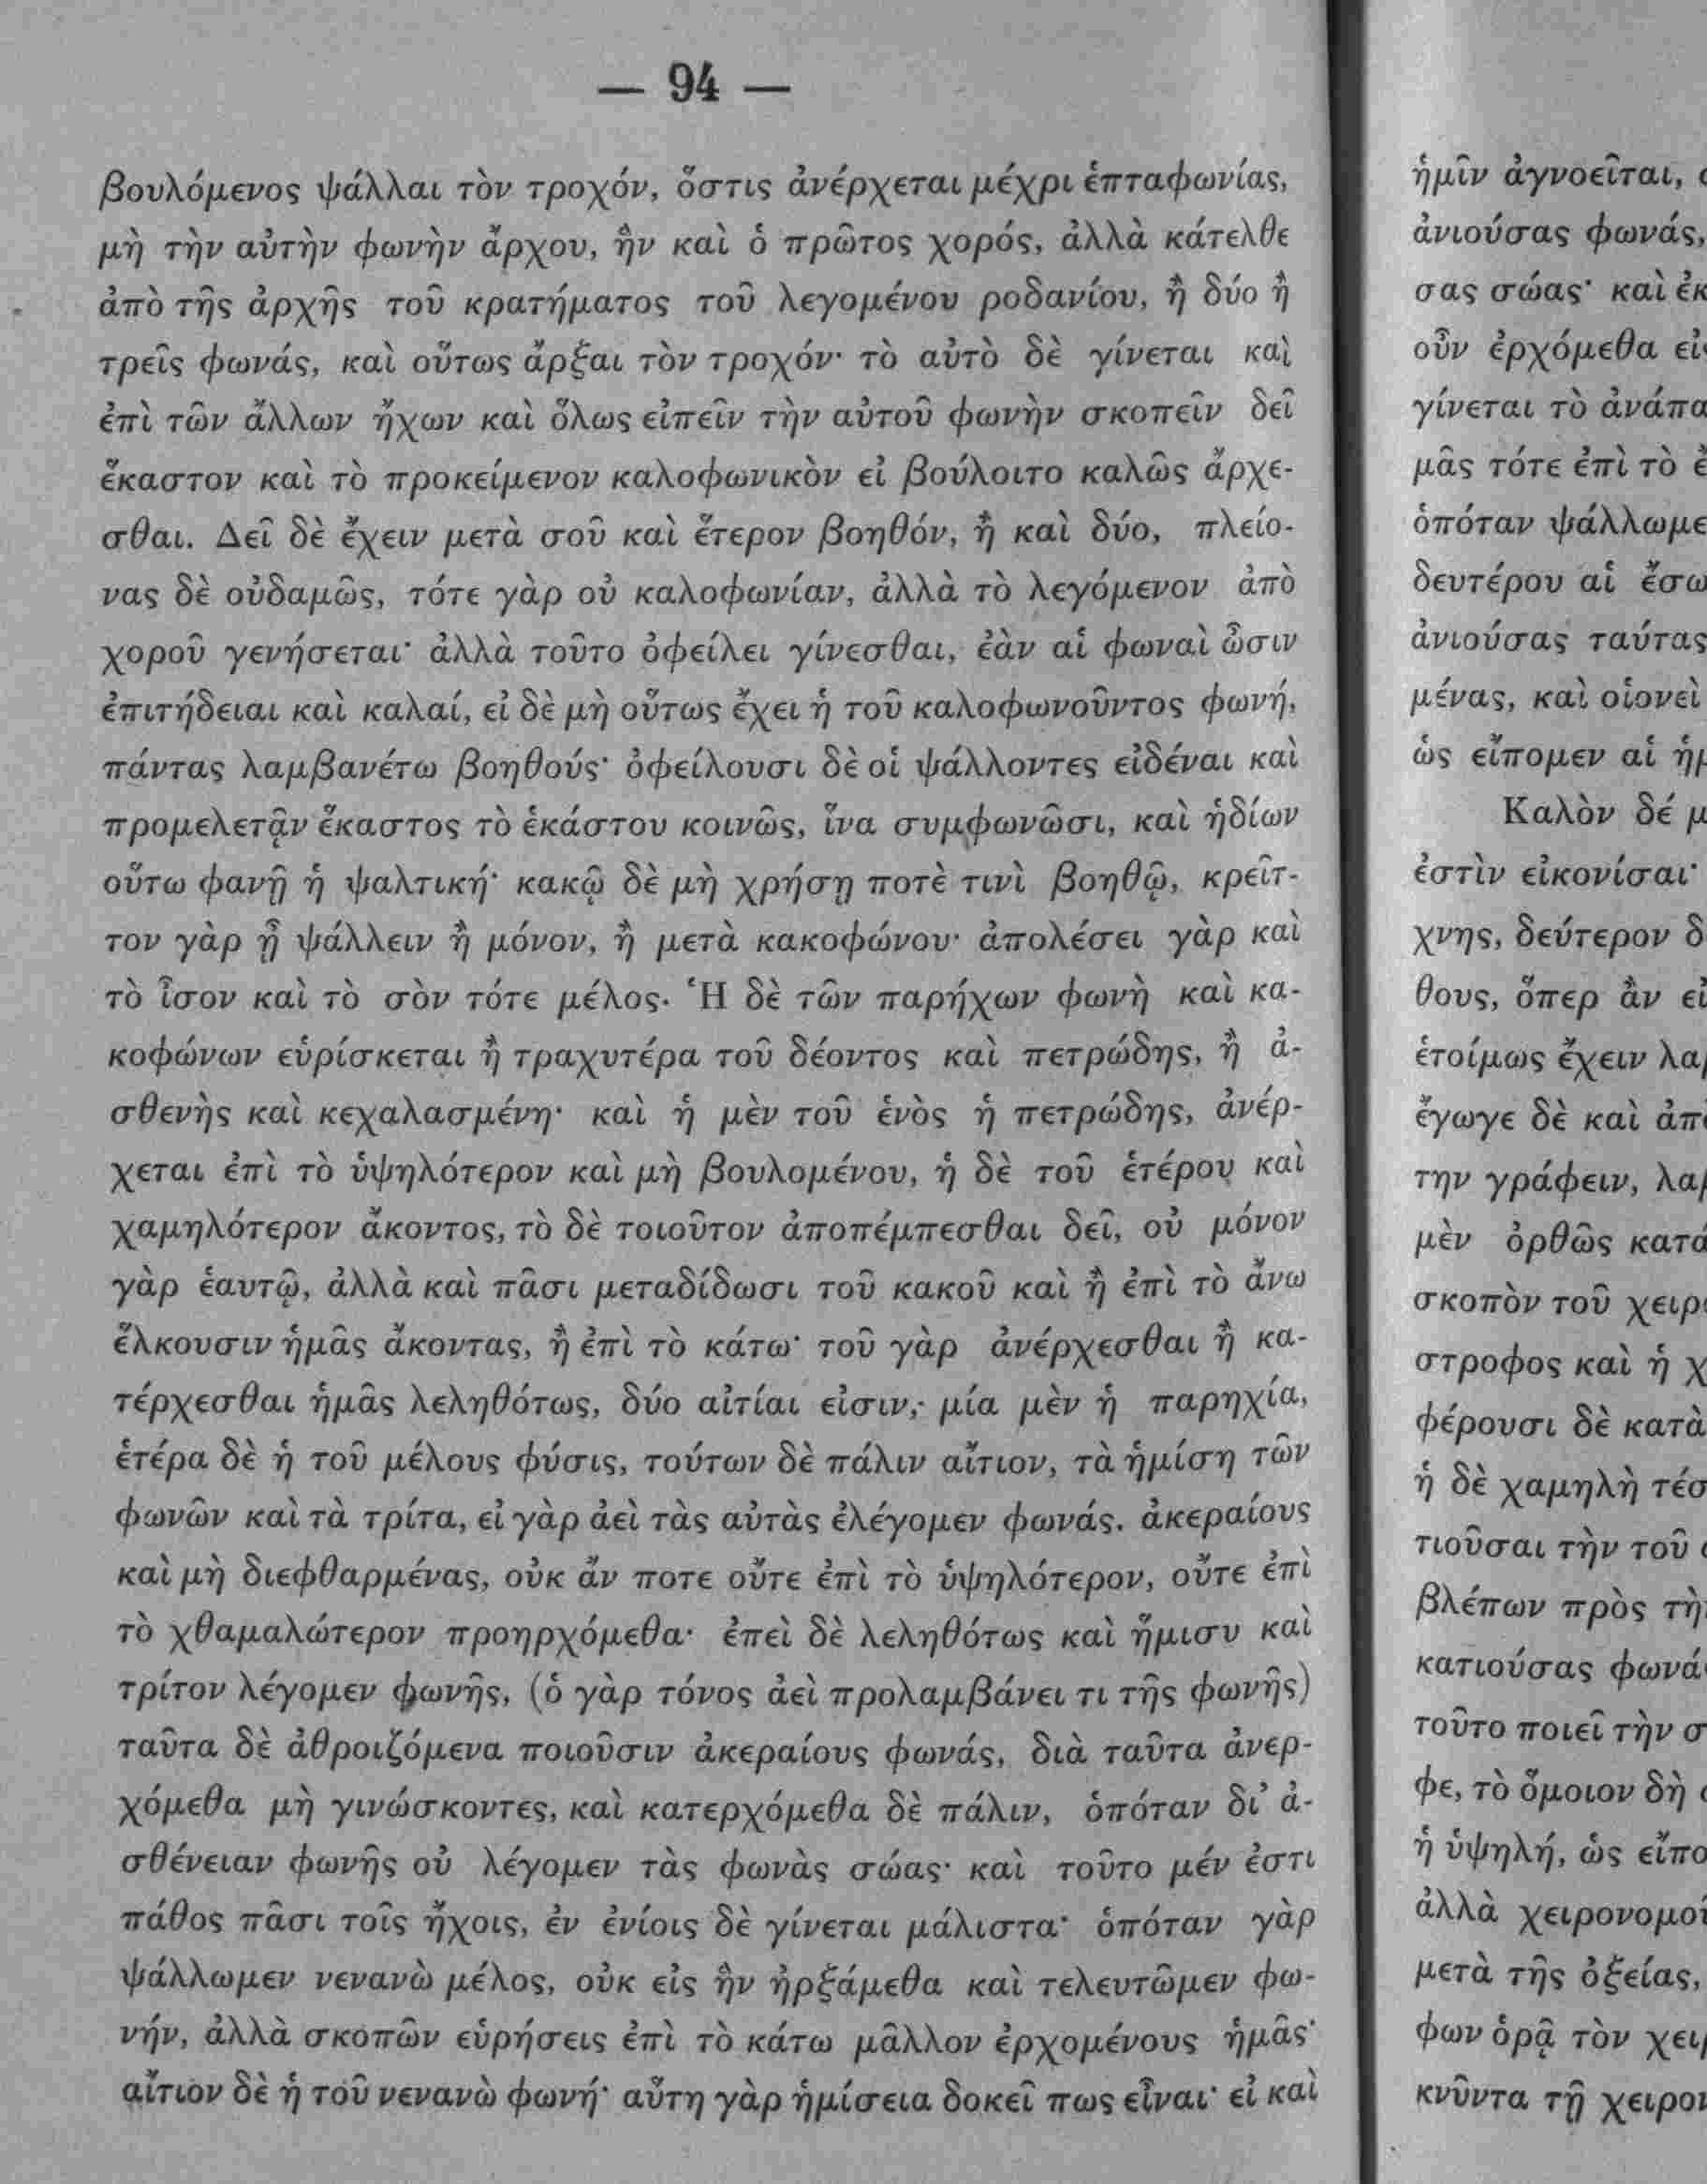 — 94 —
βουλόμενος ψάλλαι τὸν τροχόν, ὅστις ἀνέρχεται μέχρι ἑπταφωνίας,
μὴ τὴν αὐτὴν φωνὴν ἄρχου, ἣν καὶ ὁ πρῶτος χορός, ἀλλὰ κάτελθε
ἀπὸ τῆς ἀρχῆς τοῦ κρατήματος τοῦ λεγομένου ροδανίου, ἢ δύο ἢ
τρεῖς φωνάς, καὶ οὕτως ἄρξαι τὸν τροχόν· τὸ αὐτὸ δὲ γίνεται καὶ
ἐπὶ τῶν ἄλλων ἤχων καὶ ὅλως εἰπεῖν τὴν αὐτοῦ φωνὴν σκοπεῖν δεῖ
ἕκαστον καὶ τὸ προκείμενον καλοφωνικὸν εἰ βούλοιτο καλῶς ἄρχε-
σθαι. Δεῖ δὲ ἔχειν μετὰ σοῦ καὶ ἕτερον βοηθόν, ἢ καὶ δύο, πλείο-
νας δὲ οὐδαμῶς, τότε γὰρ οὐ καλοφωνίαν, ἀλλὰ τὸ λεγόμενον ἀπὸ
χοροῦ γενήσεται· ἀλλὰ τοῦτο ὀφείλει γίνεσθαι, ἐὰν αἱ φωναὶ ὦσιν
ἐπιτήδειαι καὶ καλαί, εἰ δὲ μὴ οὕτως ἔχει ἡ τοῦ καλοφωνοῦντος φωνή,
πάντας λαμβανέτω βοηθούς· ὀφείλουσι δὲ οἱ ψάλλοντες εἰδέναι καὶ
προμελετᾷν ἕκαστος τὸ ἑκάστου κοινῶς, ἵνα συμφωνῶσι, καὶ ἡδίων
οὕτω φανῇ ἡ ψαλτική· κακῷ δὲ μὴ χρήσῃ ποτὲ τινὶ βοηθῷ, κρεῖτ-
τον γὰρ ᾖ ψάλλειν ἢ μόνον, ἢ μετὰ κακοφώνου· ἀπολέσει γὰρ καὶ
τὸ ἶσον καὶ τὸ σὸν τότε μέλος. Ἡ δὲ τῶν παρήχων φωνὴ καὶ κα-
κοφώνων εὑρίσκεται ἢ τραχυτέρα τοῦ δέοντος καὶ πετρώδης, ἢ ἀ-
σθενὴς καὶ κεχαλασμένη· καὶ ἡ μὲν τοῦ ἑνὸς ἡ πετρώδης, ἀνέρ-
χεται ἐπὶ τὸ ὑψηλότερον καὶ μὴ βουλομένου, ἡ δὲ τοῦ ἑτέρου καὶ
χαμηλότερον ἄκοντος, τὸ δὲ τοιοῦτον ἀποπέμπεσθαι δεῖ, οὐ μόνον
γὰρ ἑαυτῷ, ἀλλὰ καὶ πᾶσι μεταδίδωσι τοῦ κακοῦ καὶ ἢ ἐπὶ τὸ ἄνω
ἕλκουσιν ἡμᾶς ἄκοντας, ἢ ἐπὶ τὸ κάτω· τοῦ γὰρ ἀνέρχεσθαι ἢ κα-
τέρχεσθαι ἡμᾶς λεληθότως, δύο αἰτίαι εἰσιν, μία μὲν ἡ παρηχία,
ἑτέρα δὲ ἡ τοῦ μέλους φύσις, τούτων δὲ πάλιν αἴτιον, τὰ ἡμίση τῶν
φωνῶν καὶ τὰ τρίτα, εἰ γὰρ ἀεὶ τὰς αὐτὰς ἐλέγομεν φωνάς. ἀκεραίους
καὶ μὴ διεφθαρμένας, οὐκ ἄν ποτε οὔτε ἐπὶ τὸ ὑψηλότερον, οὔτε ἐπὶ
τὸ χθαμαλώτερον προηρχόμεθα· ἐπεὶ δὲ λεληθότως καὶ ἥμισυ καὶ
τρίτον λέγομεν φωνῆς, (ὁ γὰρ τόνος ἀεὶ προλαμβάνει τι τῆς φωνῆς)
ταῦτα δὲ ἀθροιζόμενα ποιοῦσιν ἀκεραίους φωνάς, διὰ ταῦτα ἀνερ-
χόμεθα μὴ γινώσκοντες, καὶ κατερχόμεθα δὲ πάλιν, ὁπόταν δι᾽ ἀ-
σθένειαν φωνῆς οὐ λέγομεν τὰς φωνὰς σώας· καὶ τοῦτο μέν ἐστι
πάθος πᾶσι τοῖς ἤχοις, ἐν ἐνίοις δὲ γίνεται μάλιστα· ὁπόταν γὰρ
ψάλλωμεν νενανὼ μέλος, οὐκ εἰς ἣν ἠρξάμεθα καὶ τελευτῶμεν φω-
νήν, ἀλλὰ σκοπῶν εὑρήσεις ἐπὶ τὸ κάτω μᾶλλον ἐρχομένους ἡμᾶς·
αἴτιον δὲ ἡ τοῦ νενανὼ φωνή· αὕτη γὰρ ἡμίσεια δοκεῖ πως εἶναι· εἰ καὶ
ἡμῖν ἀγνοεῖται,
ἀνιούσας φωνάς,
σας σώας· καὶ
οὖν ἐρχόμεθα
γίνεται τὸ
μᾶς τότε ἐπὶ τὸ
ὁπόταν
δευτέρου αἱ
ἀνιούσας ταύτας
μένας, καὶ οἱονεὶ
ὡς εἴπομεν αἱ
Καλὸν δέ
ἐστὶν εἰκονίσαι·
χνης, δεύτερον
θους, ὅπερ ἂν
ἑτοίμως ἔχειν
ἔγωγε δὲ καὶ
την γράφειν,
μὲν ὀρθῶς
σκοπὸν τοῦ
στροφος καὶ ἡ
φέρουσι δὲ κατὰ
ἡ δὲ χαμηλὴ
τιοῦσαι τὴν τοῦ
βλέπων πρὸς
κατιούσας
τοῦτο ποιεῖ τὴν
φε, τὸ ὅμοιον δὴ
ἡ ὑψηλή, ὡς
ἀλλὰ
μετὰ τῆς ὀξείας,
φων ὁρᾷ τὸν
κνῦντα τῇ